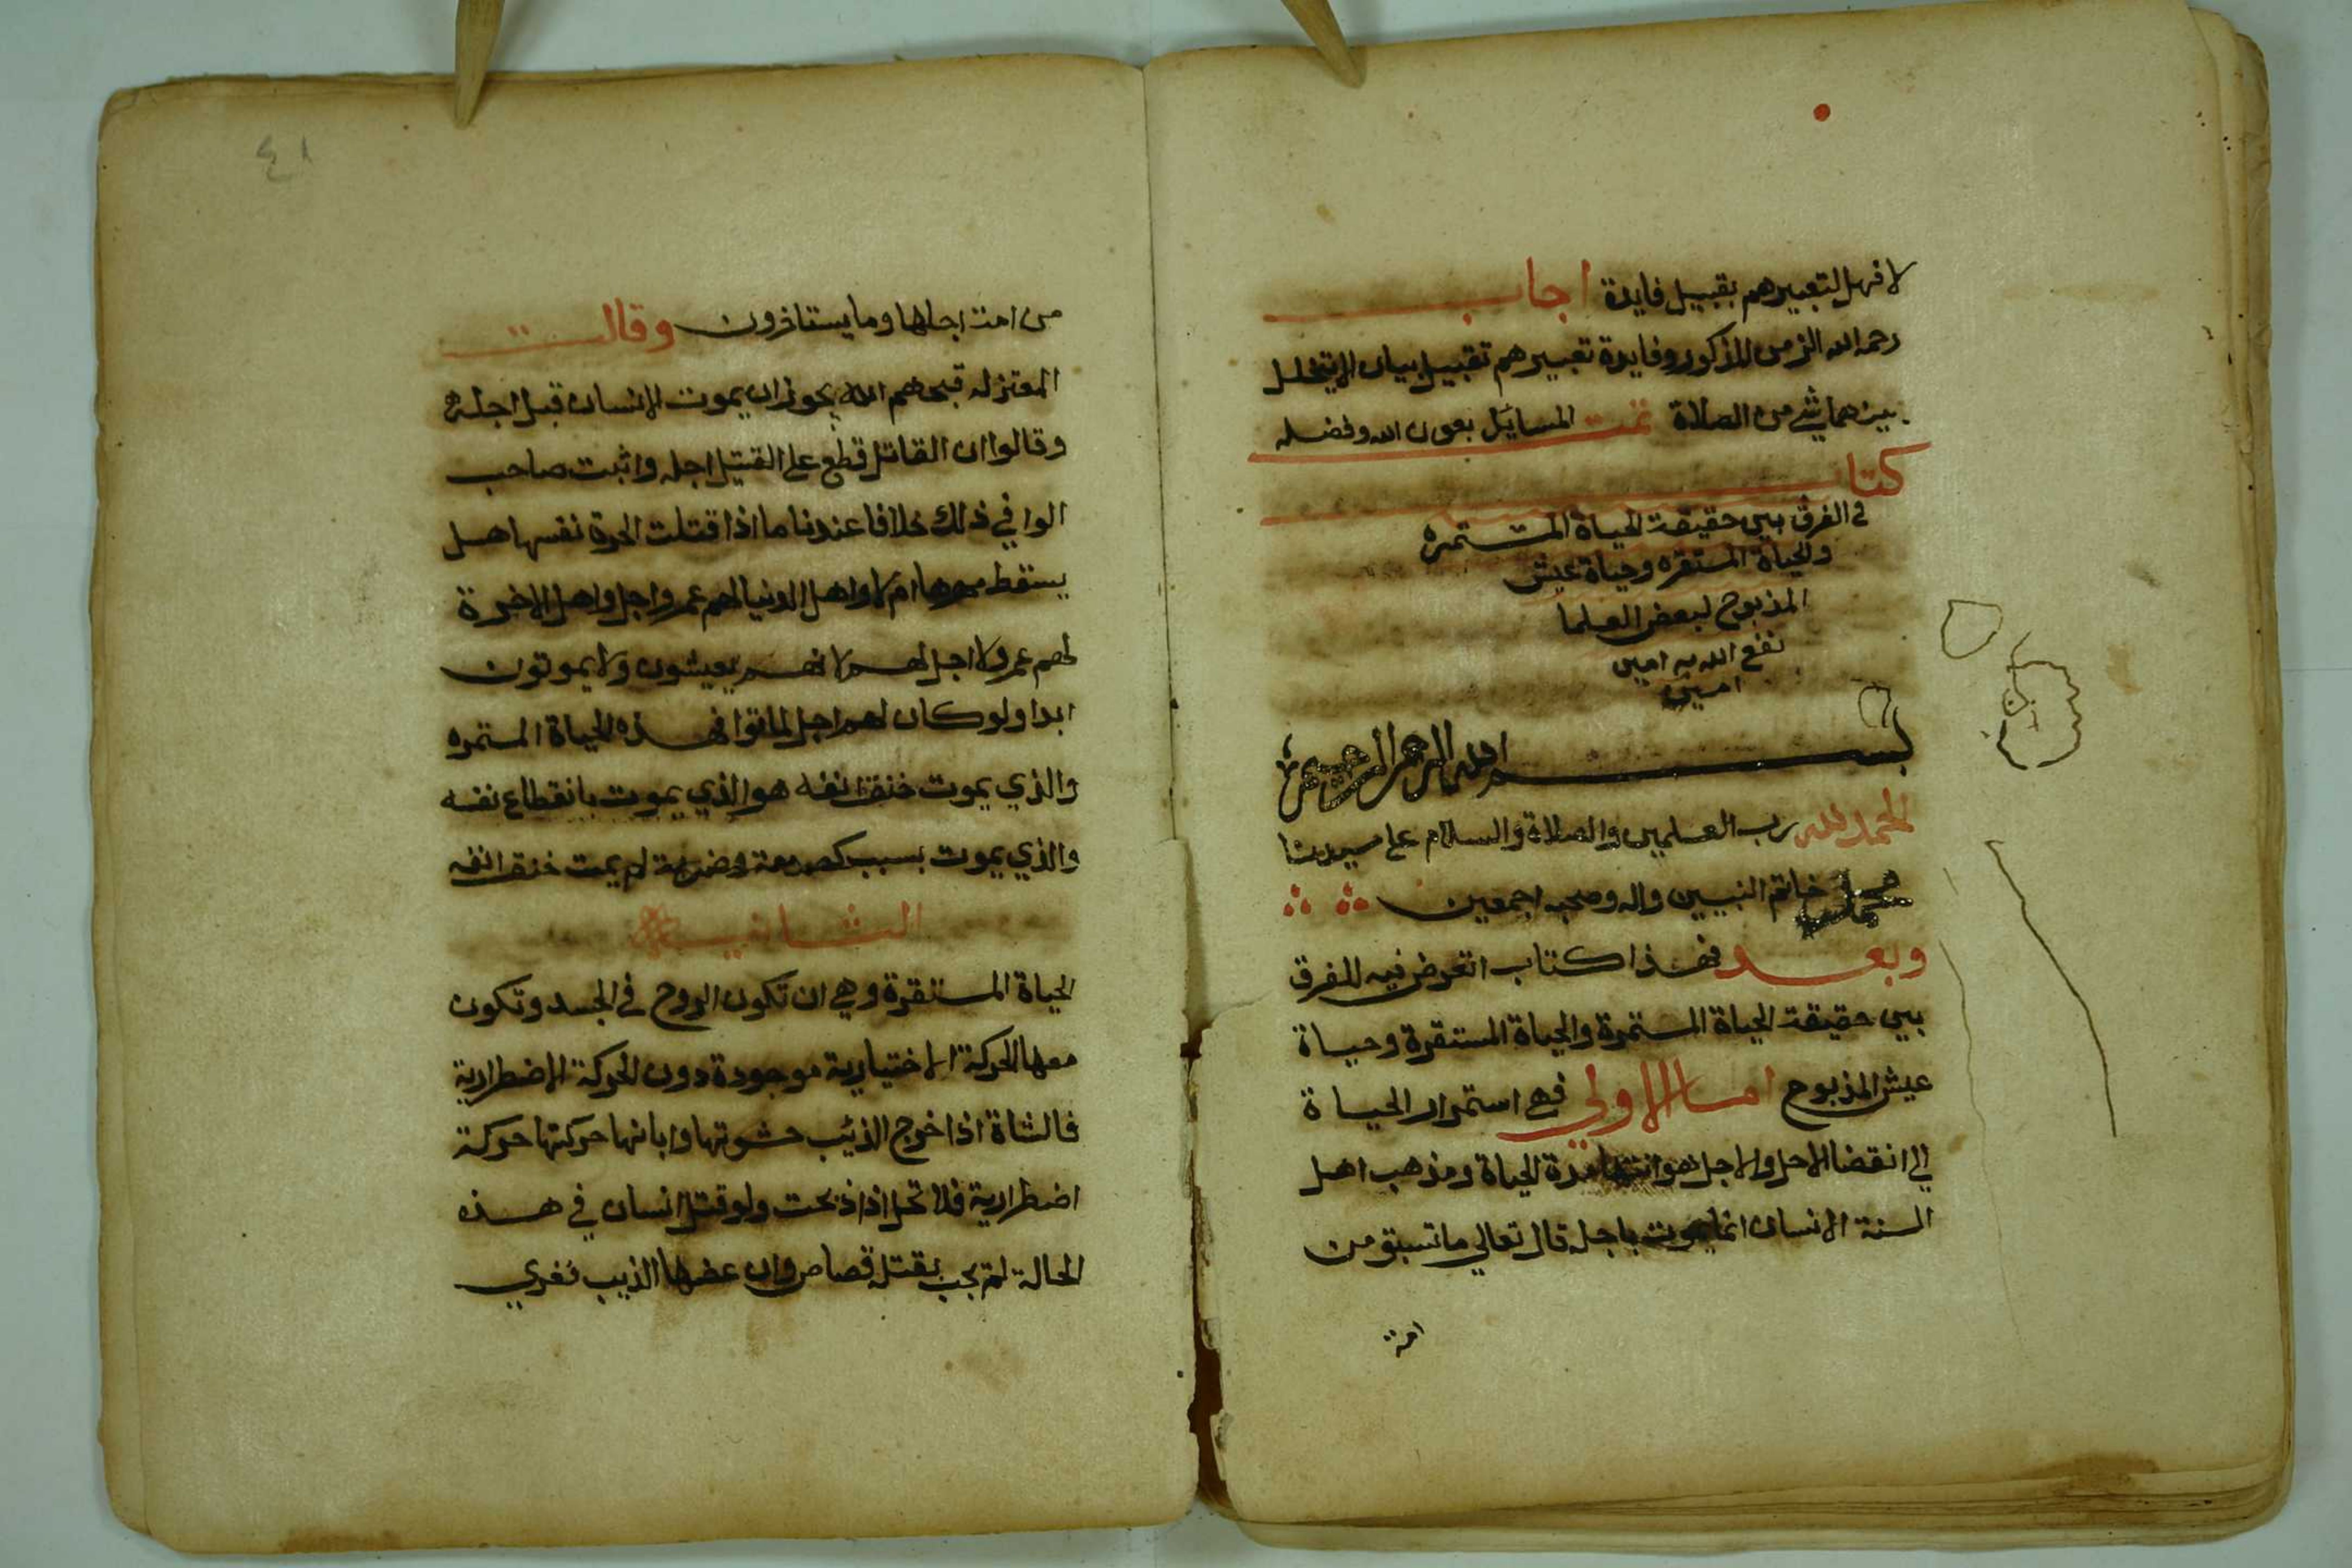 لا فهل لتعبيرهم بقبيل فايدة اجاب
رحمه الله الزمن المذكور وفايدة تعبيرهم تقبيل بيان لا يتخلل
بينهما شي من الصلاة تمت المسايل بعون الله وفضله
كتاب
في الفرق بين حقيقة الحياة المستمره
والحياة المستقره وحياة عيش
المذبوح لبعض العلما
نفع الله به امين
امين
بسم الله الرحمن الرحيم
الحمد لله رب العلمين والصلاة والسلام على سيدنا
محمد خاتم النبيين واله وصحبه اجمعين
وبعد فهذا كتاب اتعرض فيه للفرق
بين حقيقة الحياة المستمرة والحياة المستقرة وحياة
عيش المذبوح اما الاولي فهي استمرار الحياة
الي انقضا الاجل والاجل هو انتها مدة الحياة ومذهب اهل
السنة الانسان انما يموت باجله قال تعالي ما تسبق من
امة
٤١
من امة اجلها وما يستاخرون وقالت
المعتزله قبحهم الله يجوز ان يموت الانسان قبل اجله
وقالوا ان القاتل قطع على القتيل اجله واثبت صاحب
الوافي ذلك خلافا عندنا ما اذا قتلت الحرة نفسها هل
يسقط مهرها ام لا واهل الدنيا لهم عمر واجل واهل الاخرة
لهم عمر ولا اجل لهم لانهم يعيشون ولا يموتون
ابدا ولو كان لهم اجل لماتوا فهذه الحياة المستمره
والذي يموت حتف انفه هو الذي يموت بانقطاع نفسه
والذي يموت بسبب كصدمة وضربة لم يمت حتف انفه
الثانيه
الحياة المستقرة وهي ان تكون الروح في الجسد وتكون
معها الحركة الاختيارية موجودة دون الحركة الاضطرارية
فالشاة اذا اخرج الذئب حشوتها وابانها حركتها حركة
اضطرارية فلا تحل اذا ذبحت ولو قتل انسان في هذه
الحالة لم يجب بقتله قصاص وان عضها الذيب فغري